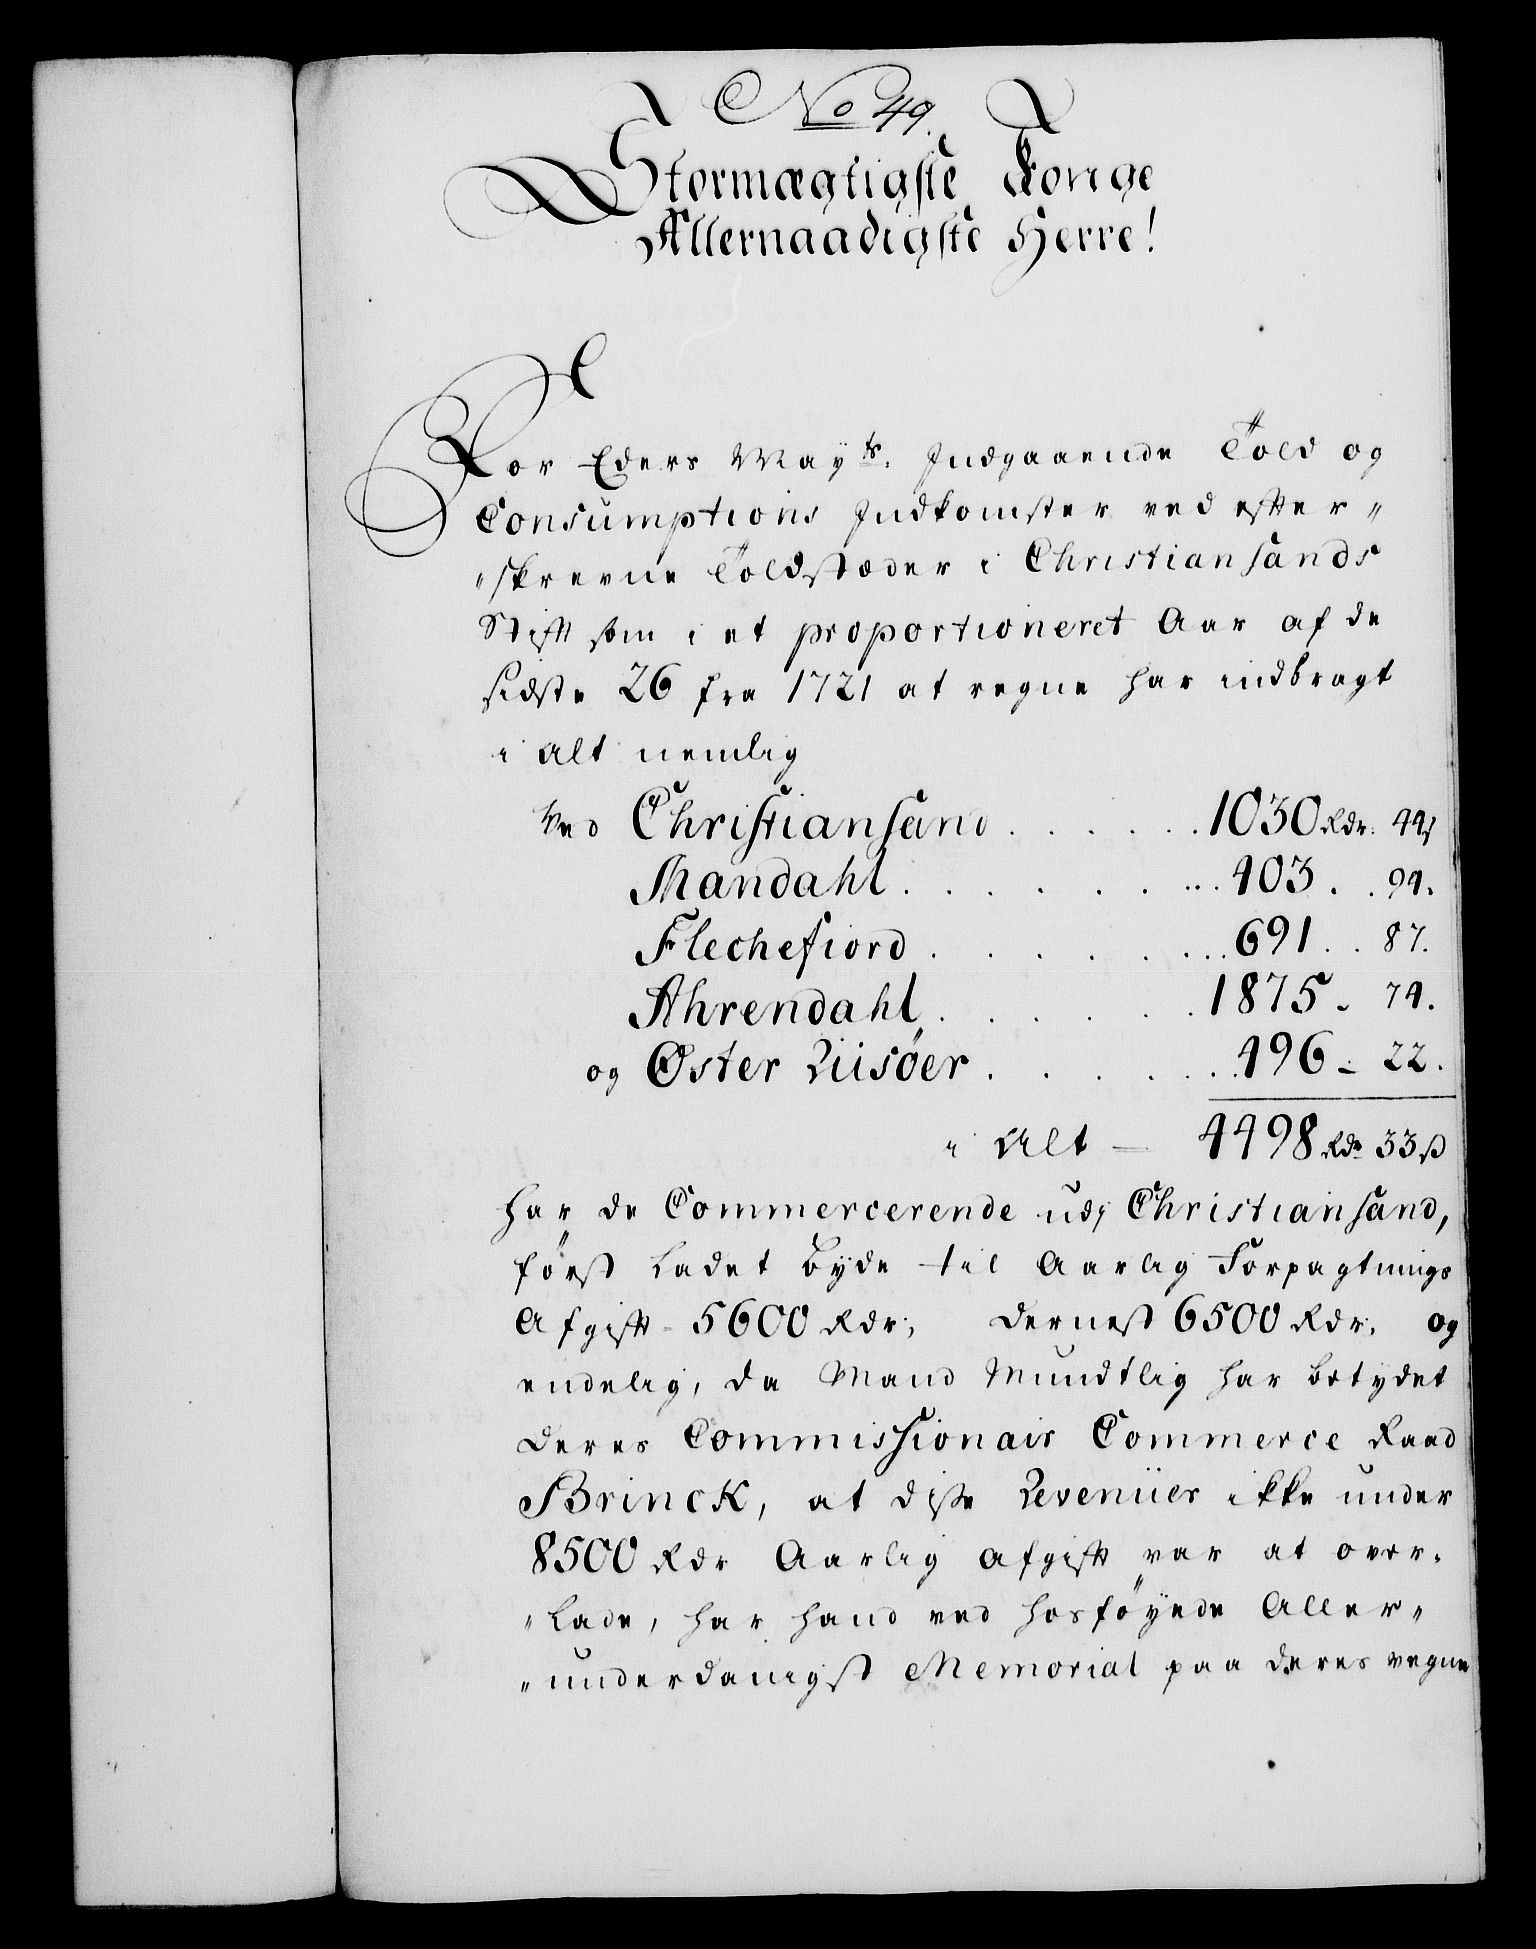 No 49.
Stormægtigste Konge
Allernaadigste Herre!
For Eders Mayts. Indgaaende Told og
Consumptions Indkomster ved effter„
„skrevne Toldstæder i Christiansands
Stifft som i et proportioneret Aar af de
sidste 26 fra 1721 at regne har indbragt
i alt nemlig
Ved Christiansand . . . . . . 1030 Rdr. 44ß
Mandahl . . . . . . . . 403 . . 94.
Flechefiord . . . . . . . . 691 . . 87.
Ahrendahl . . . . . . 1875 . 74.
og Øster Riisöer . . . . . . . 496 - 22.
i Alt — 4498 Rdr 33 ß
har de Commercerende udj Christiansand,
först Ladet Byde til Aarlig Forpagtnings
Afgifft - 5600 Rdr; dernest 6500 Rdr. og
endelig, da Mand Mundtlig har betydet
deres Commissionair Commerce Raad
Brinck, at disse Revenüer ikke under
8500 Rdr Aarlig afgifft var at over„
„lade, har hand ved hosföyede Aller„
„underdanigst Memorial paa deres vegne